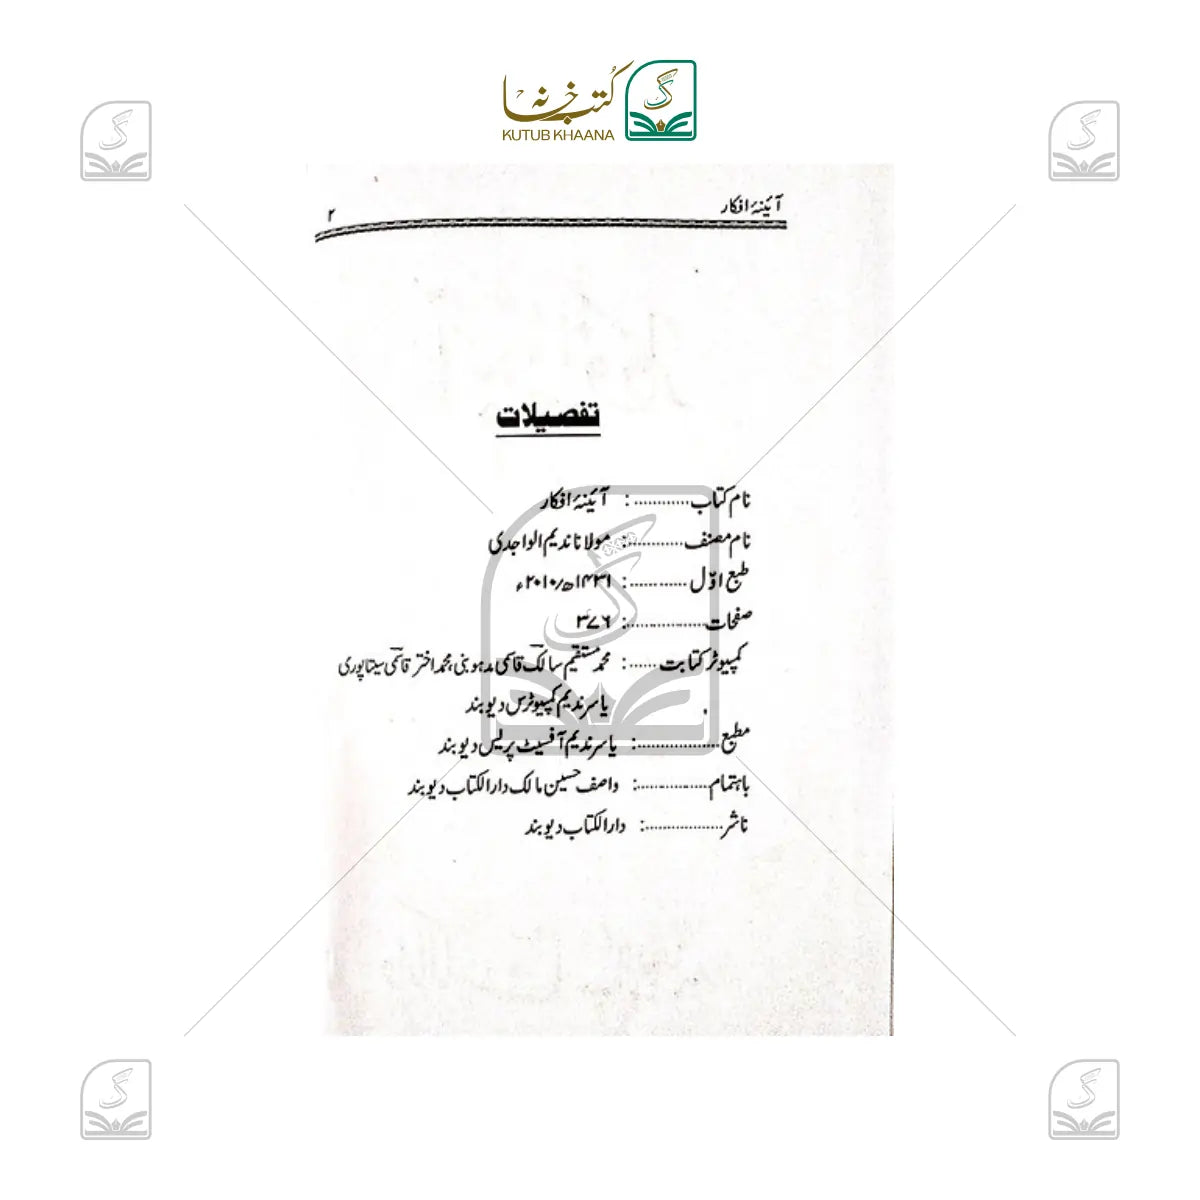 کتب خانہ
KUTUB KHAANA
آئینۂ افکار
۲
تفصیلات
نام کتاب ............ : آئینۂ افکار
نام مصنف ............ : مولانا ندیم الواجدی
طبع اوّل ............ : ۱۴۳۱ھ/۲۰۱۰ء
صفحات .................. : ۳۷۶
کمپیوٹر کتابت ...... : محمد مستقیم سالکؔ قاسمی مدہوبنی، محمد اختر قاسمی سیتاپوری
یاسر ندیم کمپیوٹرس دیوبند
مطبع .................. : یاسر ندیم آفسیٹ پریس دیوبند
باہتمام ................ : واصف حسین مالک دارالکتاب دیوبند
ناشر .................. : دارالکتاب دیوبند